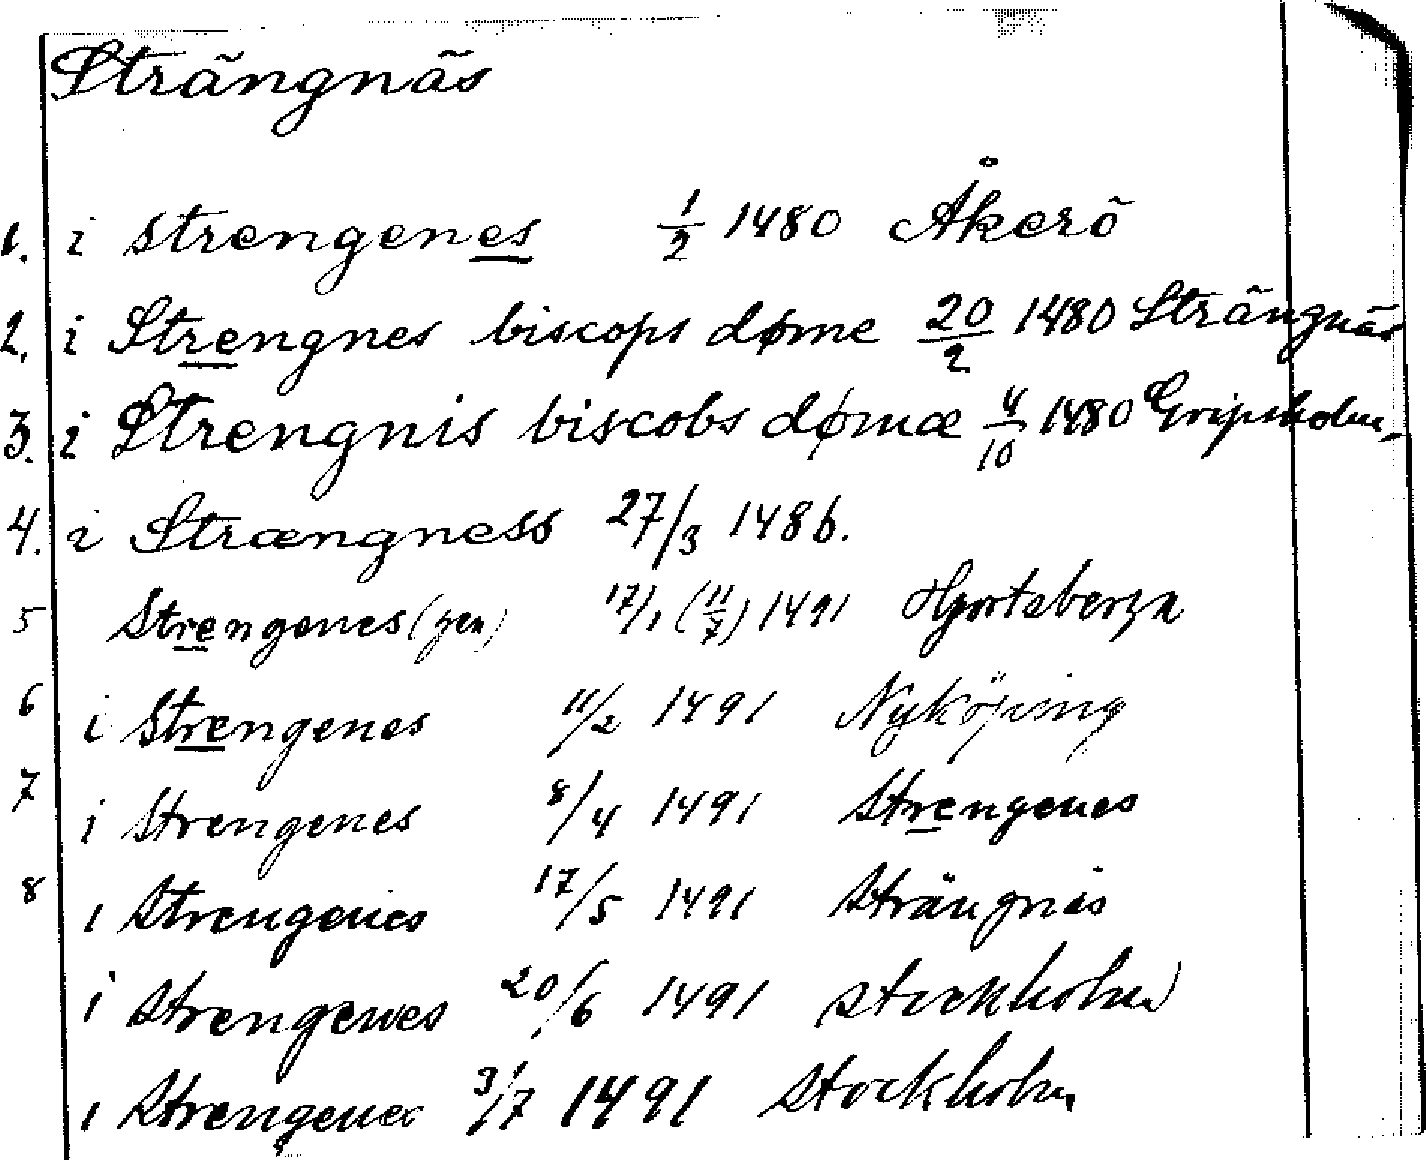 Strängnäs
1. i strengenes 1/2 1480 Åkerö
2. i Strengnes biscops døme 20/2 1480 Strängnäs
3. i Strengnis biscobs dømæ 4/10 1480 Gripsholm
4. i Strængness 27/3 1486.
5 Strengenes (gen) 17/1 (11/7) 1491 Hjorteberga
6 i Strengenes 11/2 1491 Nyköping
7 i Strengenes 8/4 1491 Strengenes
8 i Strengenes 17/5 1491 Strängnäs
i Strengenes 20/6 1491 Stockholm
i Strengenes 31/7 1491 Stockholm